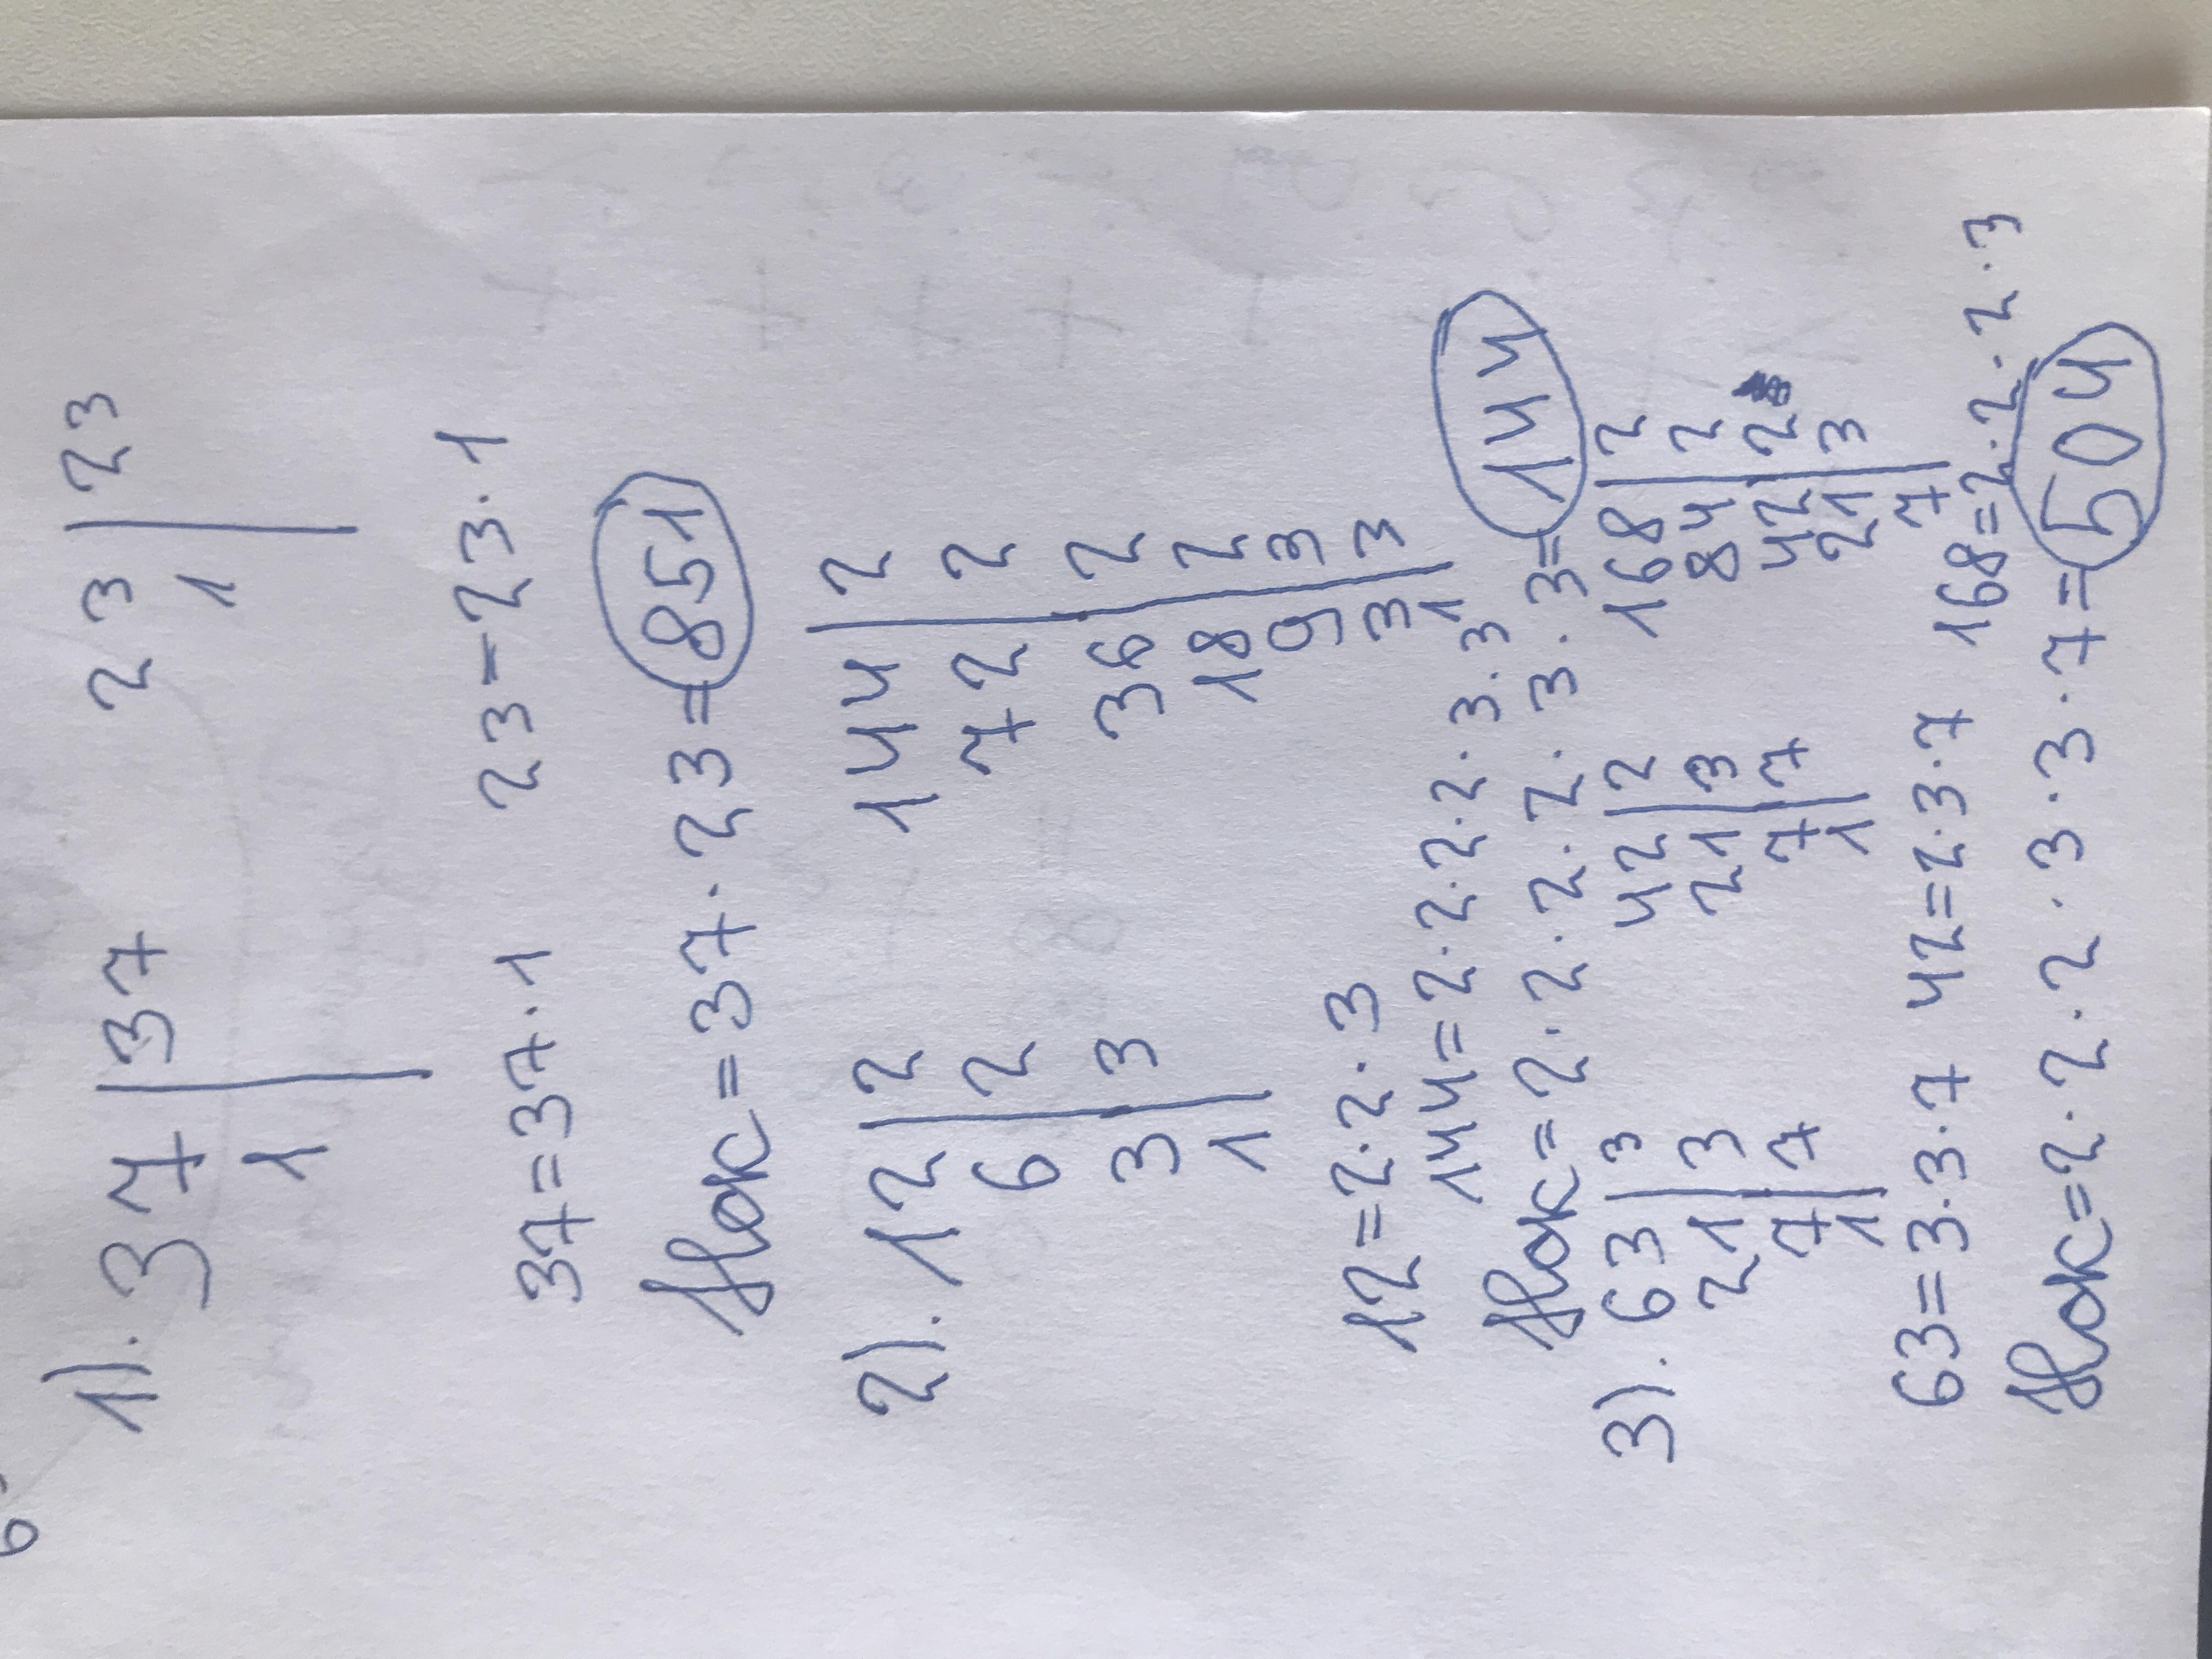 1). 37|37 23|23
1| 1|
37=37·1 23-23·1
Нок=37·23=851
2). 12|2 144|2
6|2 72|2
3|3 36|2
1| 18|2
9|3
3|3
1|
12=2·2·3
144=2·2·2·2·3·3
Нок=2·2·2·2·3·3=144
3). 63|3 42|2 168|2
21|3 21|3 84|2
7|7 7|7 42|2
1| 1| 21|3
7|
63=3·3·7 42=2·3·7 168=2·2·2·3
Нок=2·2·2·3·3·7=504